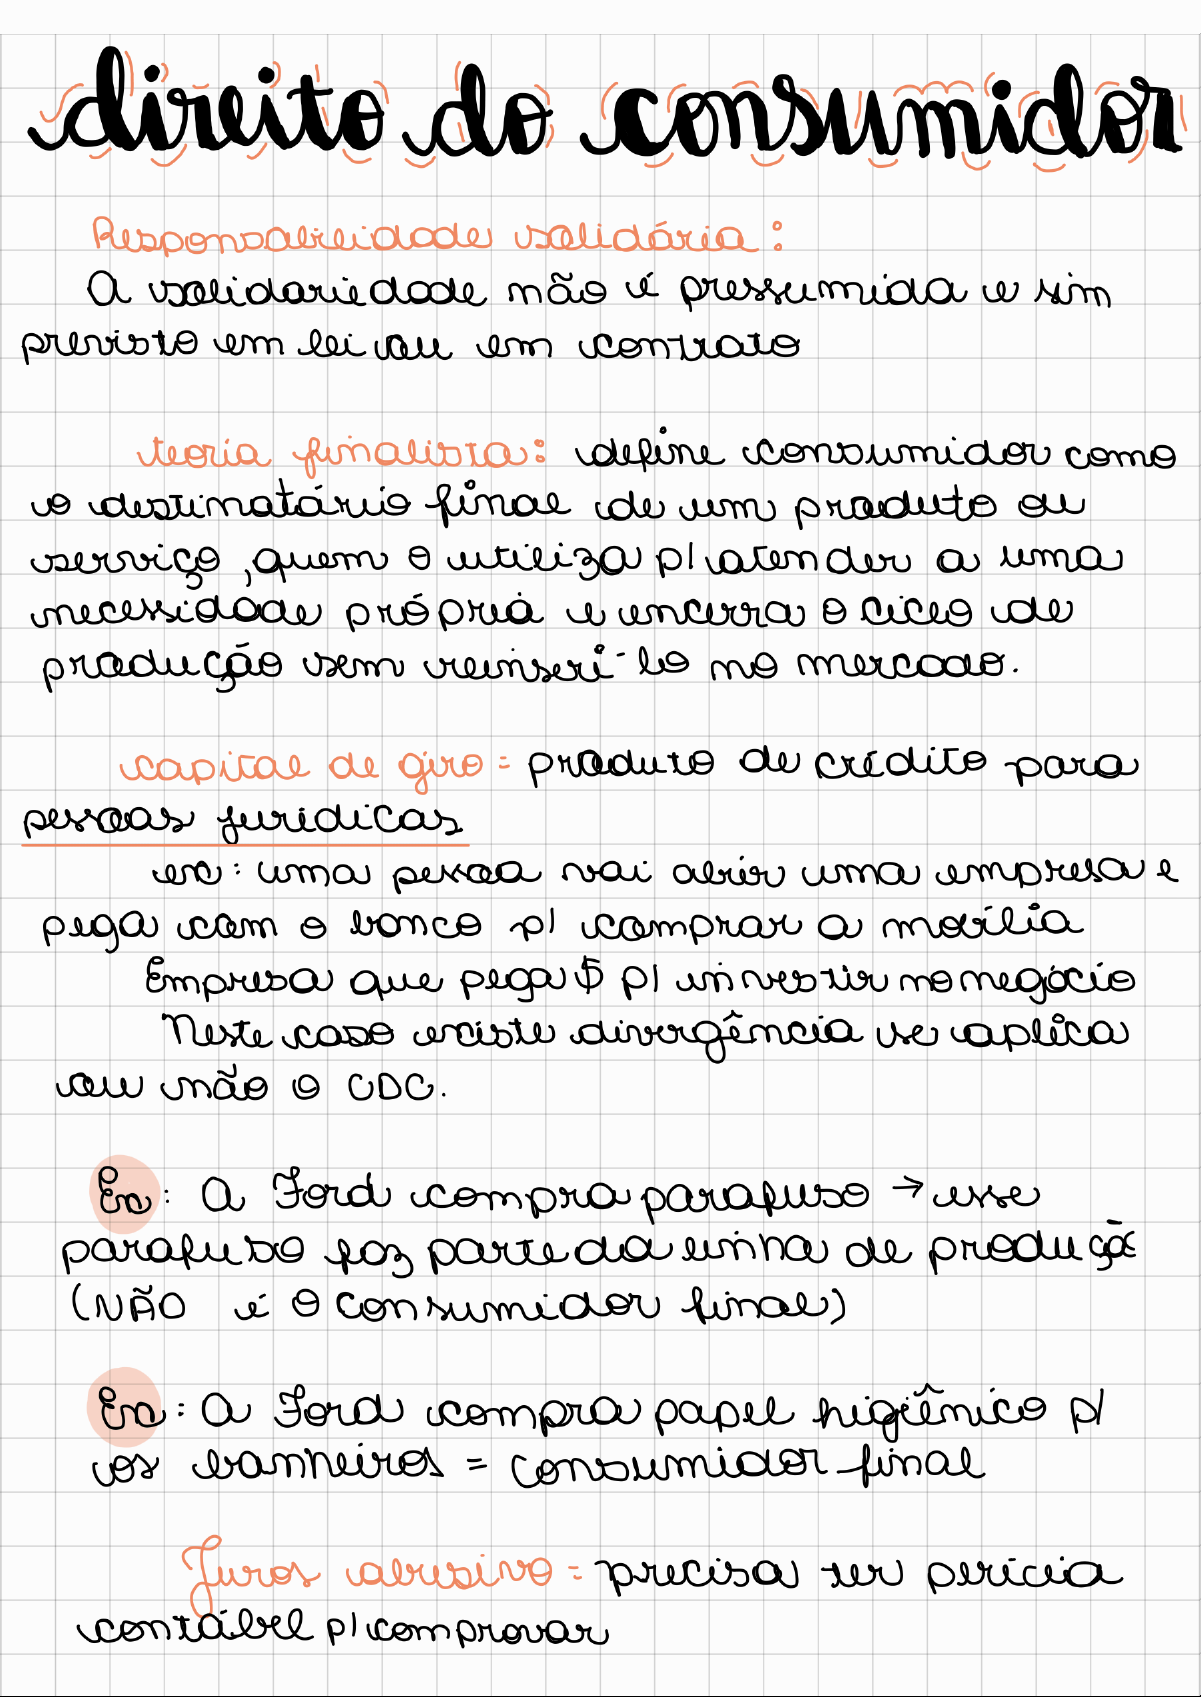 direito do consumidor
Responsabilidade solidária:
A solidariedade não é pressumida e sim
previsto em lei ou em contrato
teoria finalista: define consumidor como
o destinatário final de um produto ou
serviço, quem o utiliza p/ atender a uma
necessidade própria e encerra o ciclo de
produção sem reinseri-lo no mercado.
capital de giro = produto de crédito para
pessoas jurídicas
ex: uma pessoa vai abrir uma empresa e
pega com o banco p/ comprar a mobília
Empresa que pega $ p/ investir no negócio
Neste caso existe divergência se aplica
ou não o CDC.
Ex: A Ford compra parafuso → esse
parafuso faz parte da linha de produção
(NÃO é o consumidor final)
Ex: A Ford compra papel higiênico p/
os banheiros = consumidor final
Juros abusivo = precisa ter perícia
contábel p/ comprovar